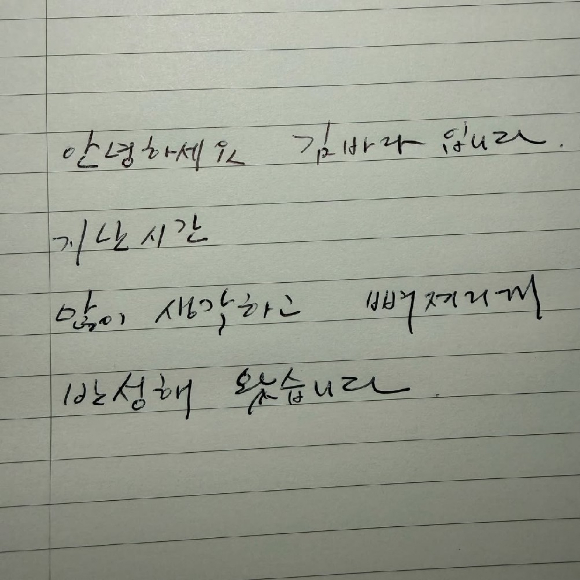 안녕하세요 김바라 입니다.
지난 시간
많이 생각하고 뼈저리게
반성해 왔습니다.